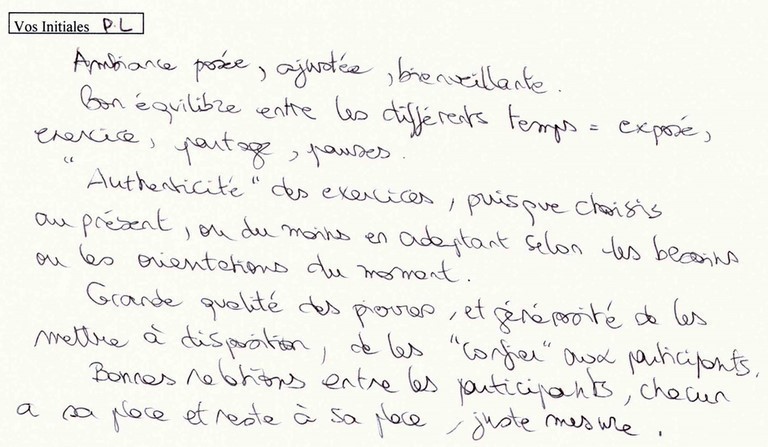 Vos Initiales P.L
Ambiance posée, ajustée, bienveillante.
Bon équilibre entre les différents temps = exposé,
exercice, partage, pauses.
"Authenticité" des exercices, puisque choisis
au présent, ou du moins en adaptant selon les besoins
ou les orientations du moment.
Grande qualité des pierres, et générosité de les
mettre à disposition, de les "confier" aux participants.
Bonnes relations entre les participants, chacun
a sa place et reste à sa place, juste mesure.